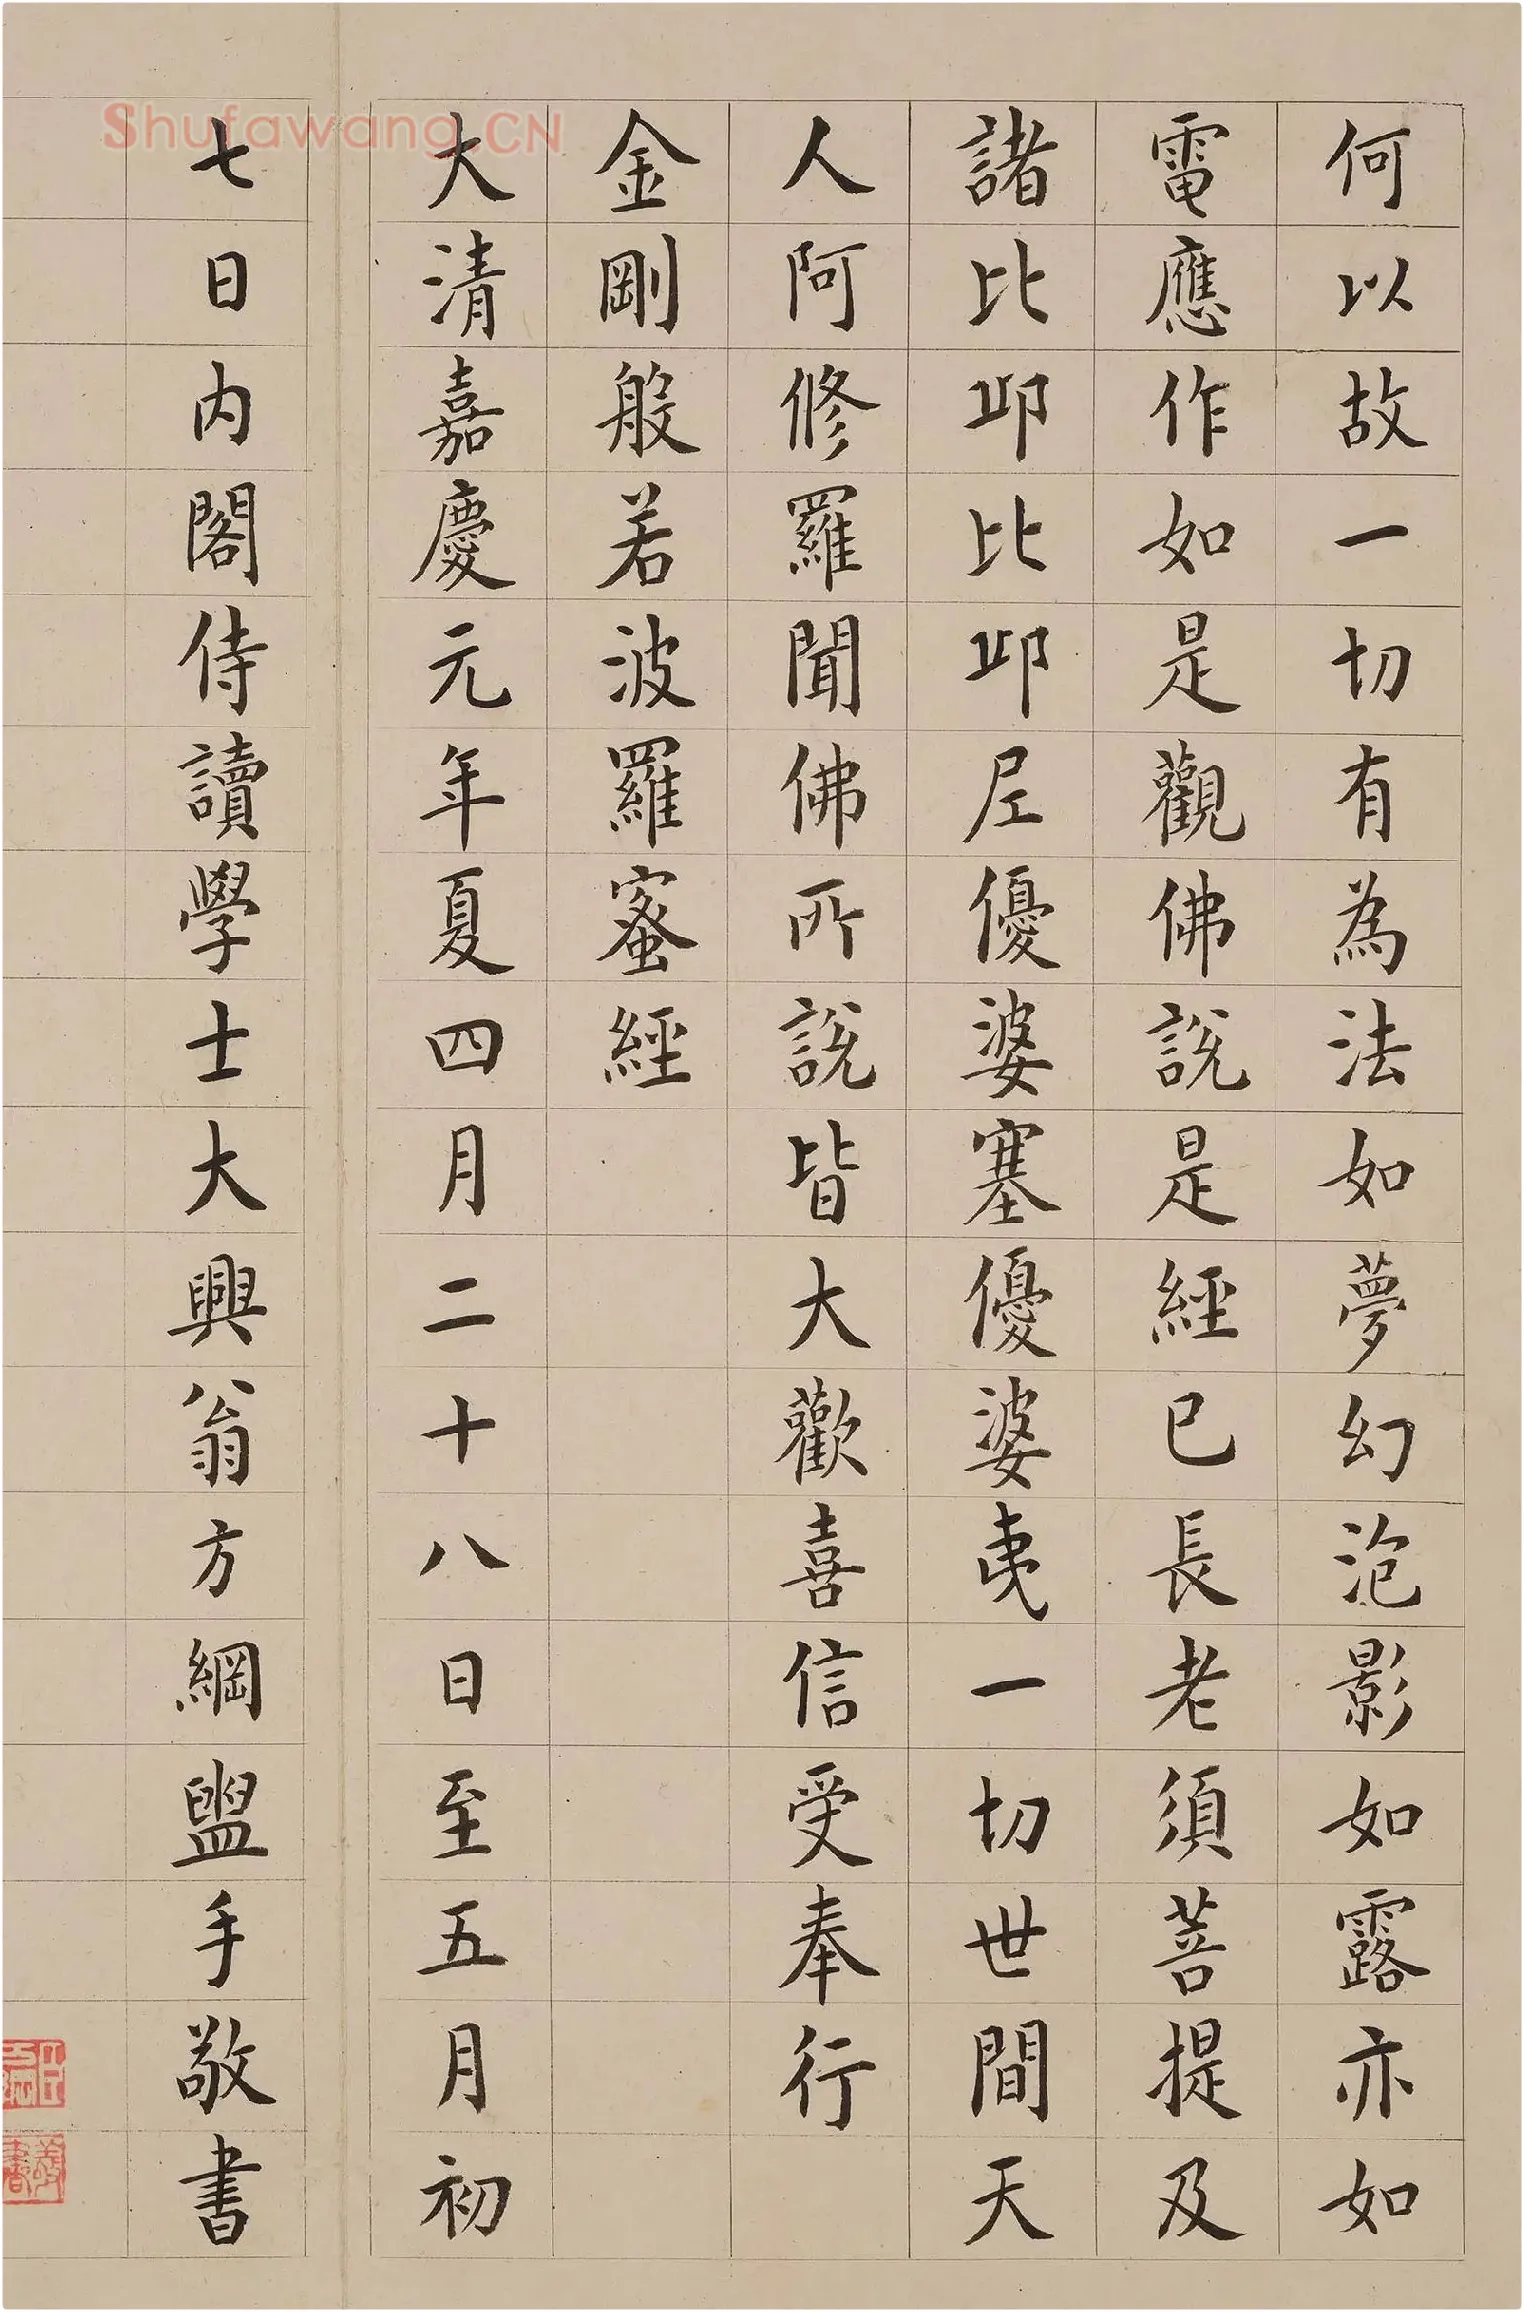 何以故一切有為法如夢幻泡影如露亦如
電應作如是觀佛說是經已長老須菩提及
諸比邱比邱尼優婆塞優婆夷一切世間天
人阿修羅聞佛所說皆大歡喜信受奉行
金剛般若波羅蜜經
大清嘉慶元年夏四月二十八日至五月初
七日內閣侍讀學士大興翁方綱盥手敬書
Shufawang.CN